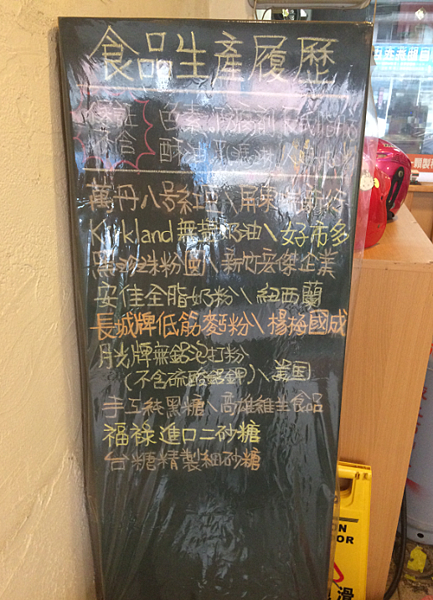 食品生產履歷
保証 色素
不含 酥油
萬丹八号紅豆\屏東
Kirkland無鹽奶油\好市多
黑珍珠粉圓\新竹宏傑企業
安佳全脂奶粉\紐西蘭
長城牌低筋麵粉\楊梅國成
月光牌無鋁泡打粉
(不含硫酸鋁鉀)\美国
手工純黑糖\高雄維生食品
福祿進口二砂糖
台糖精製細砂糖
滑